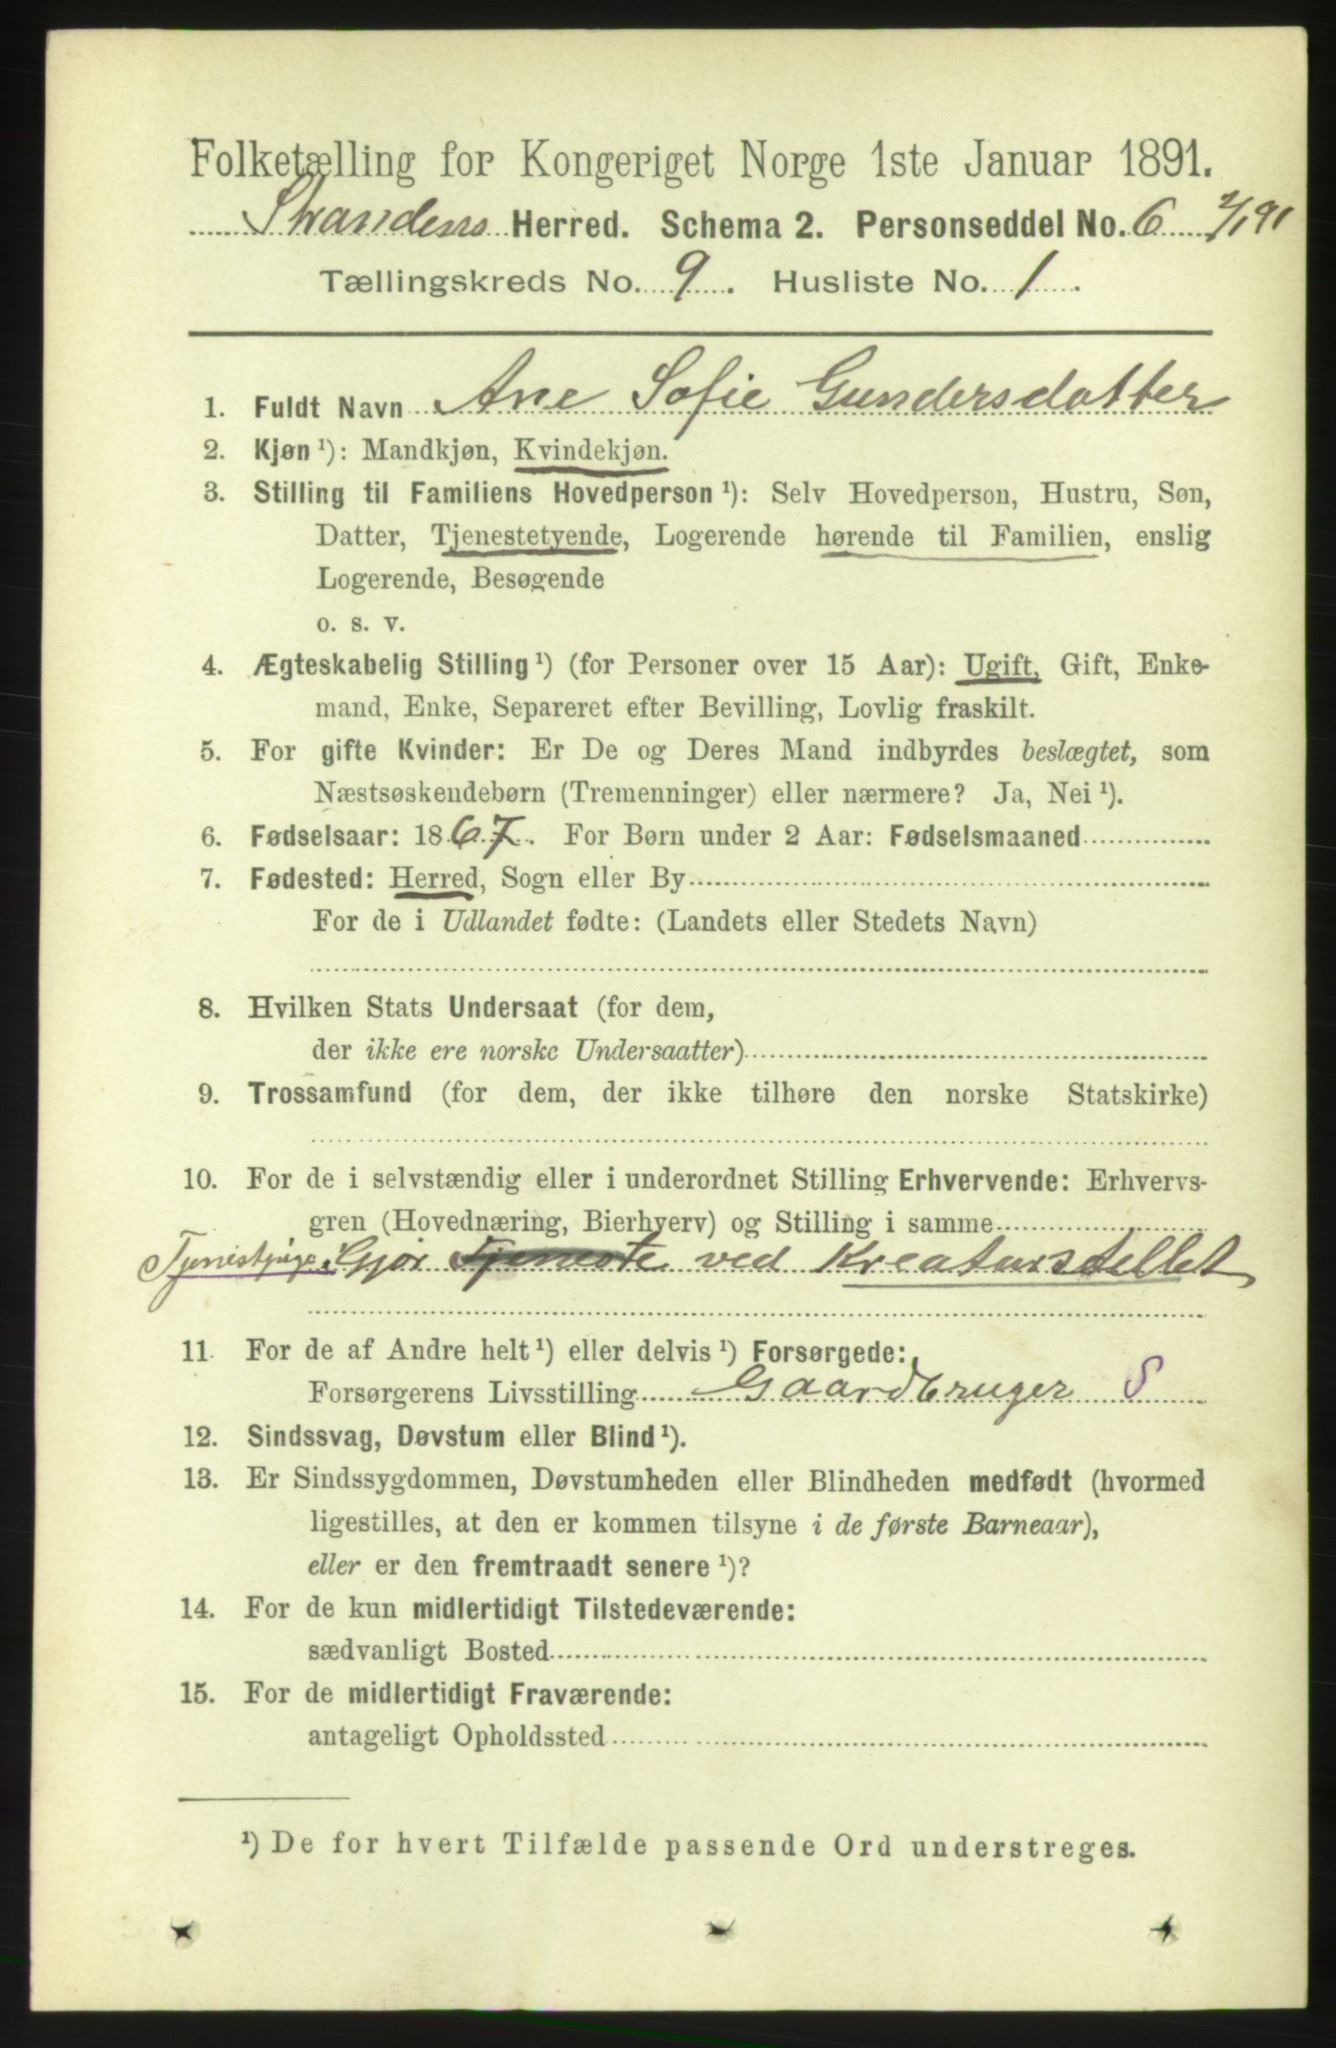 Folketælling for Kongeriget Norge 1ste Januar 1891.
Strandens Herred. Schema 2. Personseddel No. 6 2/1 91
Tællingskreds No. 9. Husliste No. 1.
1. Fuldt Navn Ane Sofie Gundersdatter
2. Kjøn ¹): Mandkjøn, Kvindekjøn.
3. Stilling til Familiens Hovedperson ¹): Selv Hovedperson, Hustru, Søn,
Datter, Tjenestetyende, Logerende hørende til Familien, enslig
Logerende, Besøgende
o. s. v.
4. Ægteskabelig Stilling ¹) (for Personer over 15 Aar): Ugift, Gift, Enke-
mand, Enke, Separeret efter Bevilling, Lovlig fraskilt.
5. For gifte Kvinder: Er De og Deres Mand indbyrdes beslægtet, som
Næstsøskendebørn (Tremenninger) eller nærmere? Ja, Nei ¹).
6. Fødselsaar: 1867. For Børn under 2 Aar: Fødselsmaaned
7. Fødested: Herred, Sogn eller By
For de i Udlandet fødte: (Landets eller Stedets Navn)
8. Hvilken Stats Undersaat (for dem,
der ikke ere norske Undersaatter)
9. Trossamfund (for dem, der ikke tilhøre den norske Statskirke)
10. For de i selvstændig eller i underordnet Stilling Erhvervende: Erhvervs-
gren (Hovednæring, Bierhverv) og Stilling i samme
Gjør Tjeneste ved Kreaturstellet
11. For de af Andre helt ¹) eller delvis ¹) Forsørgede:
Forsørgerens Livsstilling Gaardbruger S
12. Sindssvag, Døvstum eller Blind ¹).
13. Er Sindssygdommen, Døvstumheden eller Blindheden medfødt (hvormed
ligestilles, at den er kommen tilsyne i de første Barneaar),
eller er den fremtraadt senere ¹)?
14. For de kun midlertidigt Tilstedeværende:
sædvanligt Bosted
15. For de midlertidigt Fraværende:
antageligt Opholdssted
¹) De for hvert Tilfælde passende Ord understreges.